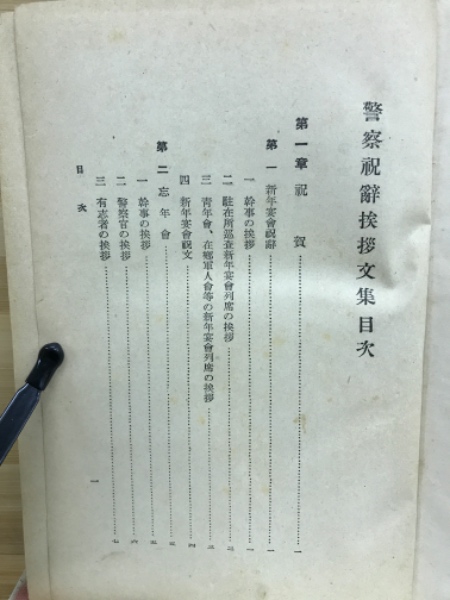 警察祝辭挨拶文集目次
第一章 祝賀……一
第一 新年宴會祝辭……一
一 幹事の挨拶……一
二 駐在所巡査新年宴會列席の挨拶……二
三 青年會、在鄕軍人會等の新年宴會列席の挨拶……三
四 新年宴會祝文……四
第二 忘年會……五
一 幹事の挨拶……五
二 警察官の挨拶……六
三 有志者の挨拶……七
目次
一